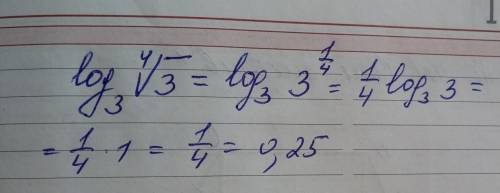 log₃ ∜3 = log₃ 3^(1/4) = 1/4 log₃ 3 =
= 1/4 · 1 = 1/4 = 0,25